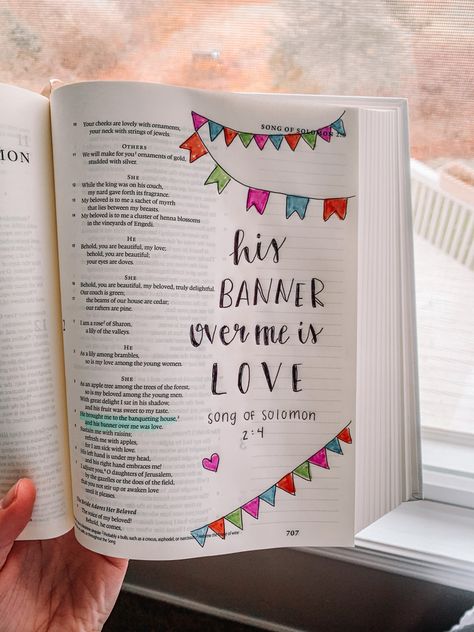 OMON
SONG OF SOLOMON
10 Your cheeks are lovely with ornaments,
your neck with strings of jewels.
OTHERS
11 We will make for you ornaments of gold,
studded with silver.
SHE
12 While the king was on his couch,
my nard gave forth its fragrance.
13 My beloved is to me a sachet of myrrh
that lies between my breasts.
14 My beloved is to me a cluster of henna blossoms
in the vineyards of Engedi.
HE
15 Behold, you are beautiful, my love;
behold, you are beautiful;
your eyes are doves.
SHE
16 Behold, you are beautiful, my beloved, truly delightful.
Our couch is green;
17 the beams of our house are cedar;
our rafters are pine.
I am a rose of Sharon,
a lily of the valleys.
HE
2 As a lily among brambles,
so is my love among the young women.
SHE
3 As an apple tree among the trees of the forest,
so is my beloved among the young men.
With great delight I sat in his shadow,
and his fruit was sweet to my taste.
4 He brought me to the banqueting house,
and his banner over me was love.
5 Sustain me with raisins;
refresh me with apples,
for I am sick with love.
6 His left hand is under my head,
and his right hand embraces me!
7 I adjure you, O daughters of Jerusalem,
by the gazelles or the does of the field,
that you not stir up or awaken love
until it pleases.
The Bride Adores Her Beloved
8 The voice of my beloved!
Behold, he comes,
his
BANNER
over me is
LOVE
song of solomon
2:4
707